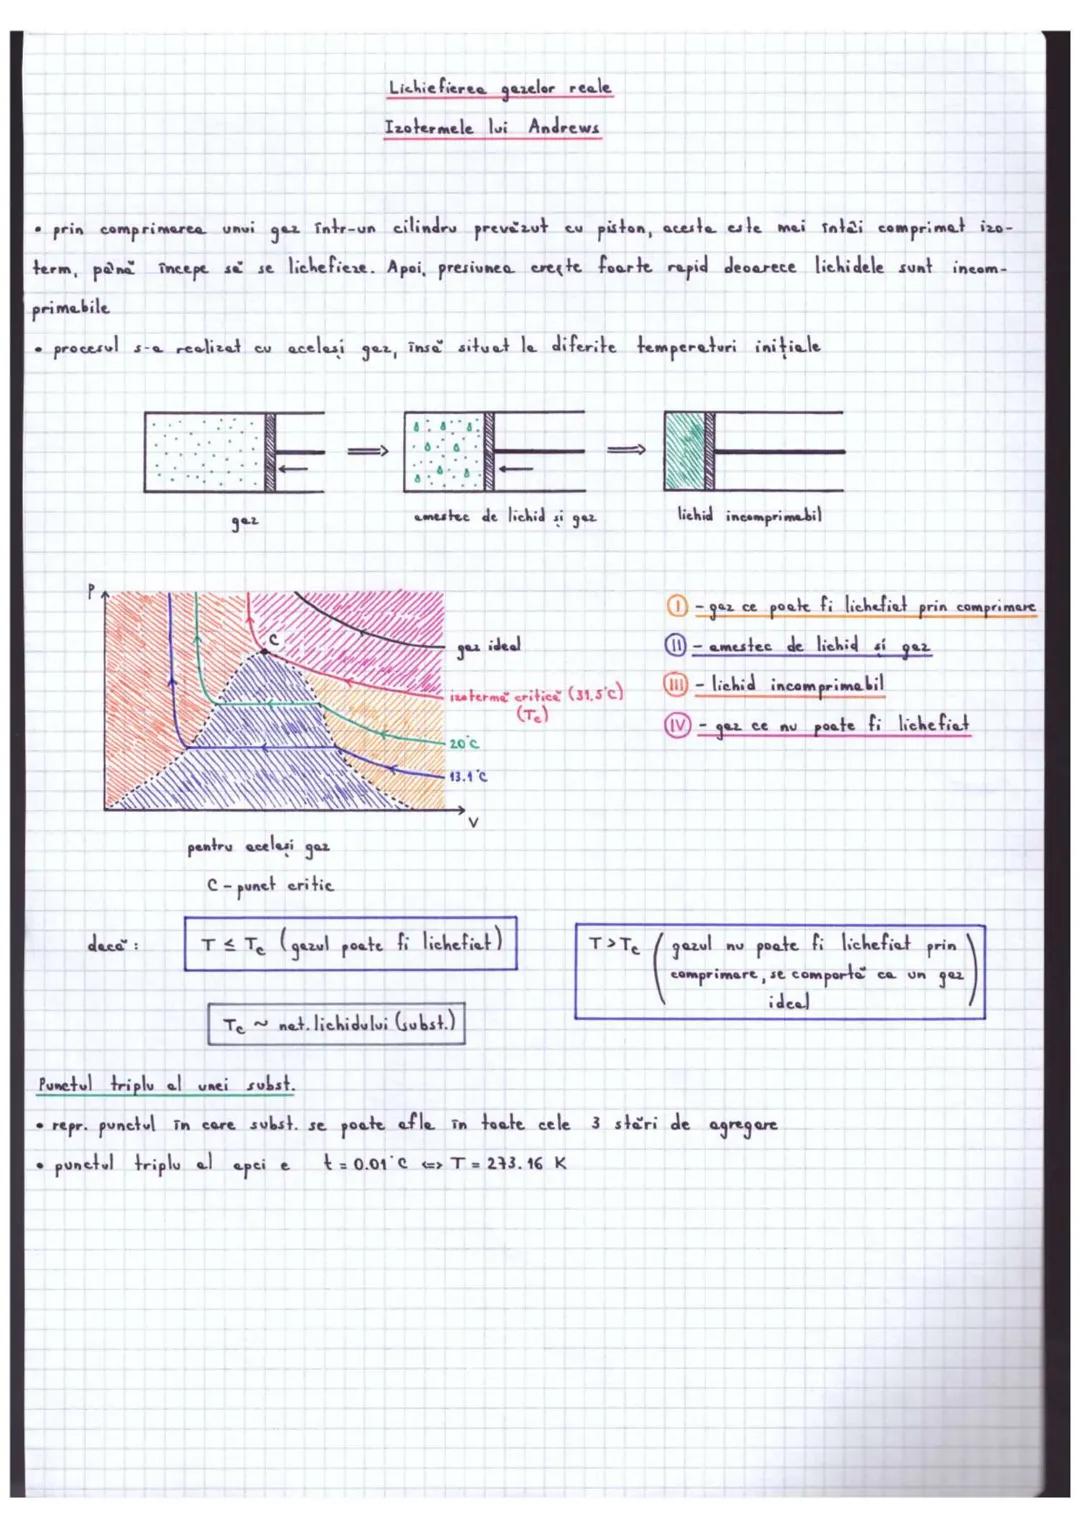 Lichiefierea gazelor reale
Izotermele lui Andrews
• prin comprimarea unui gaz într-un cilindru prevăzut cu piston, acesta este mai întâi comprimat izo-
term, până începe să se lichefieze. Apoi, presiunea crește foarte rapid deoarece lichidele sunt incom-
primabile
• procesul s-a realizat cu același gaz, însă situat la diferite temperaturi inițiale
gaz
amestec de lichid și gaz
lichid incomprimabil
P
C
gaz ideal
izotermă critică (31,5°C)
(Tc)
20°C
13.1°C
V
I - gaz ce poate fi lichefiat prin comprimare
II - amestec de lichid si gaz
III - lichid incomprimabil
IV - gaz ce nu poate fi lichefiat
pentru același gaz
C - punct critic
dacă :
T ≤ Tc (gazul poate fi lichefiat)
T > Tc (gazul nu poate fi lichefiat prin
comprimare, se comportă ca un gaz
ideal)
Tc ~ nat. lichidului (subst.)
Punctul triplu al unei subst.
• repr. punctul în care subst. se poate afla în toate cele 3 stări de agregare
• punctul triplu al apei e t = 0.01°C <=> T = 273.16 K